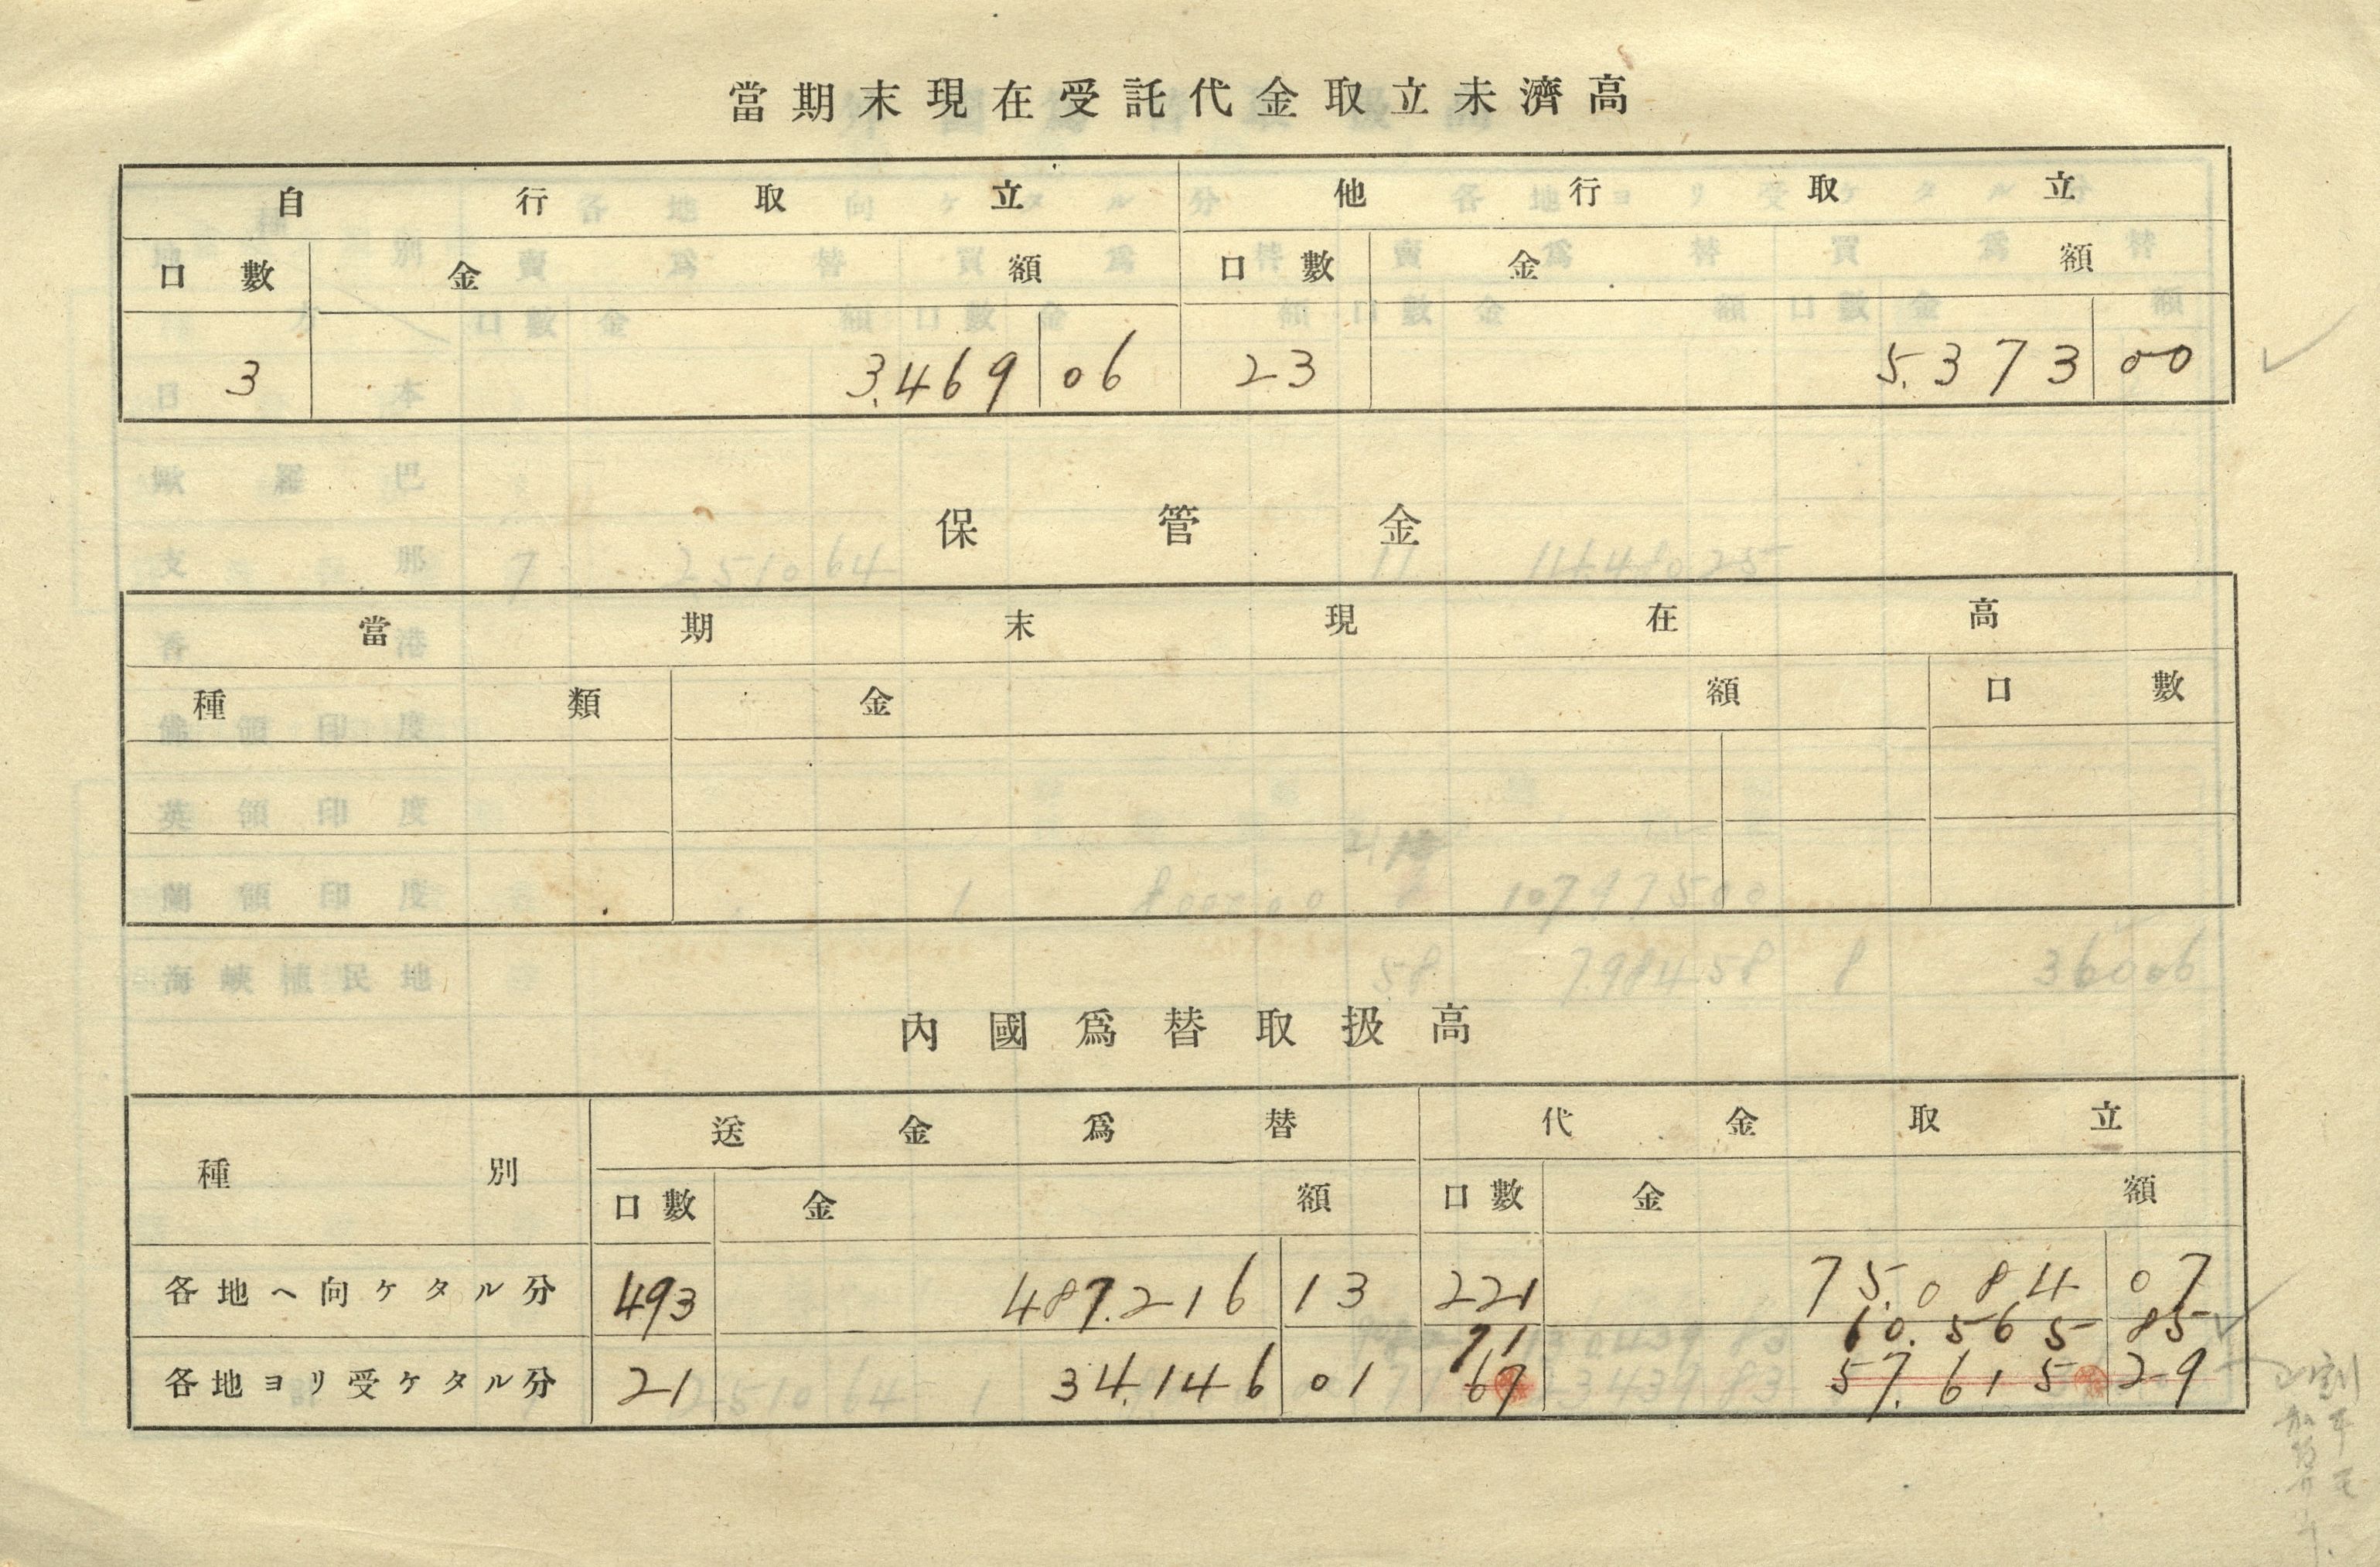 當期末現在受託代金取立未濟高
自行取立 他行取立
口數 金額 口數 金額
3 3.469 06 23 5.373 00
保管金
當期末現在高
種類 金額 口數
內國爲替取扱高
種別 送金爲替 代金取立
口數 金額 口數 金額
各地ヘ向ケタル分 493 487.216 13 221 75.084 07
71 60.565 85
各地ヨリ受ケタル分 21 34.146 01 67 57.615 29